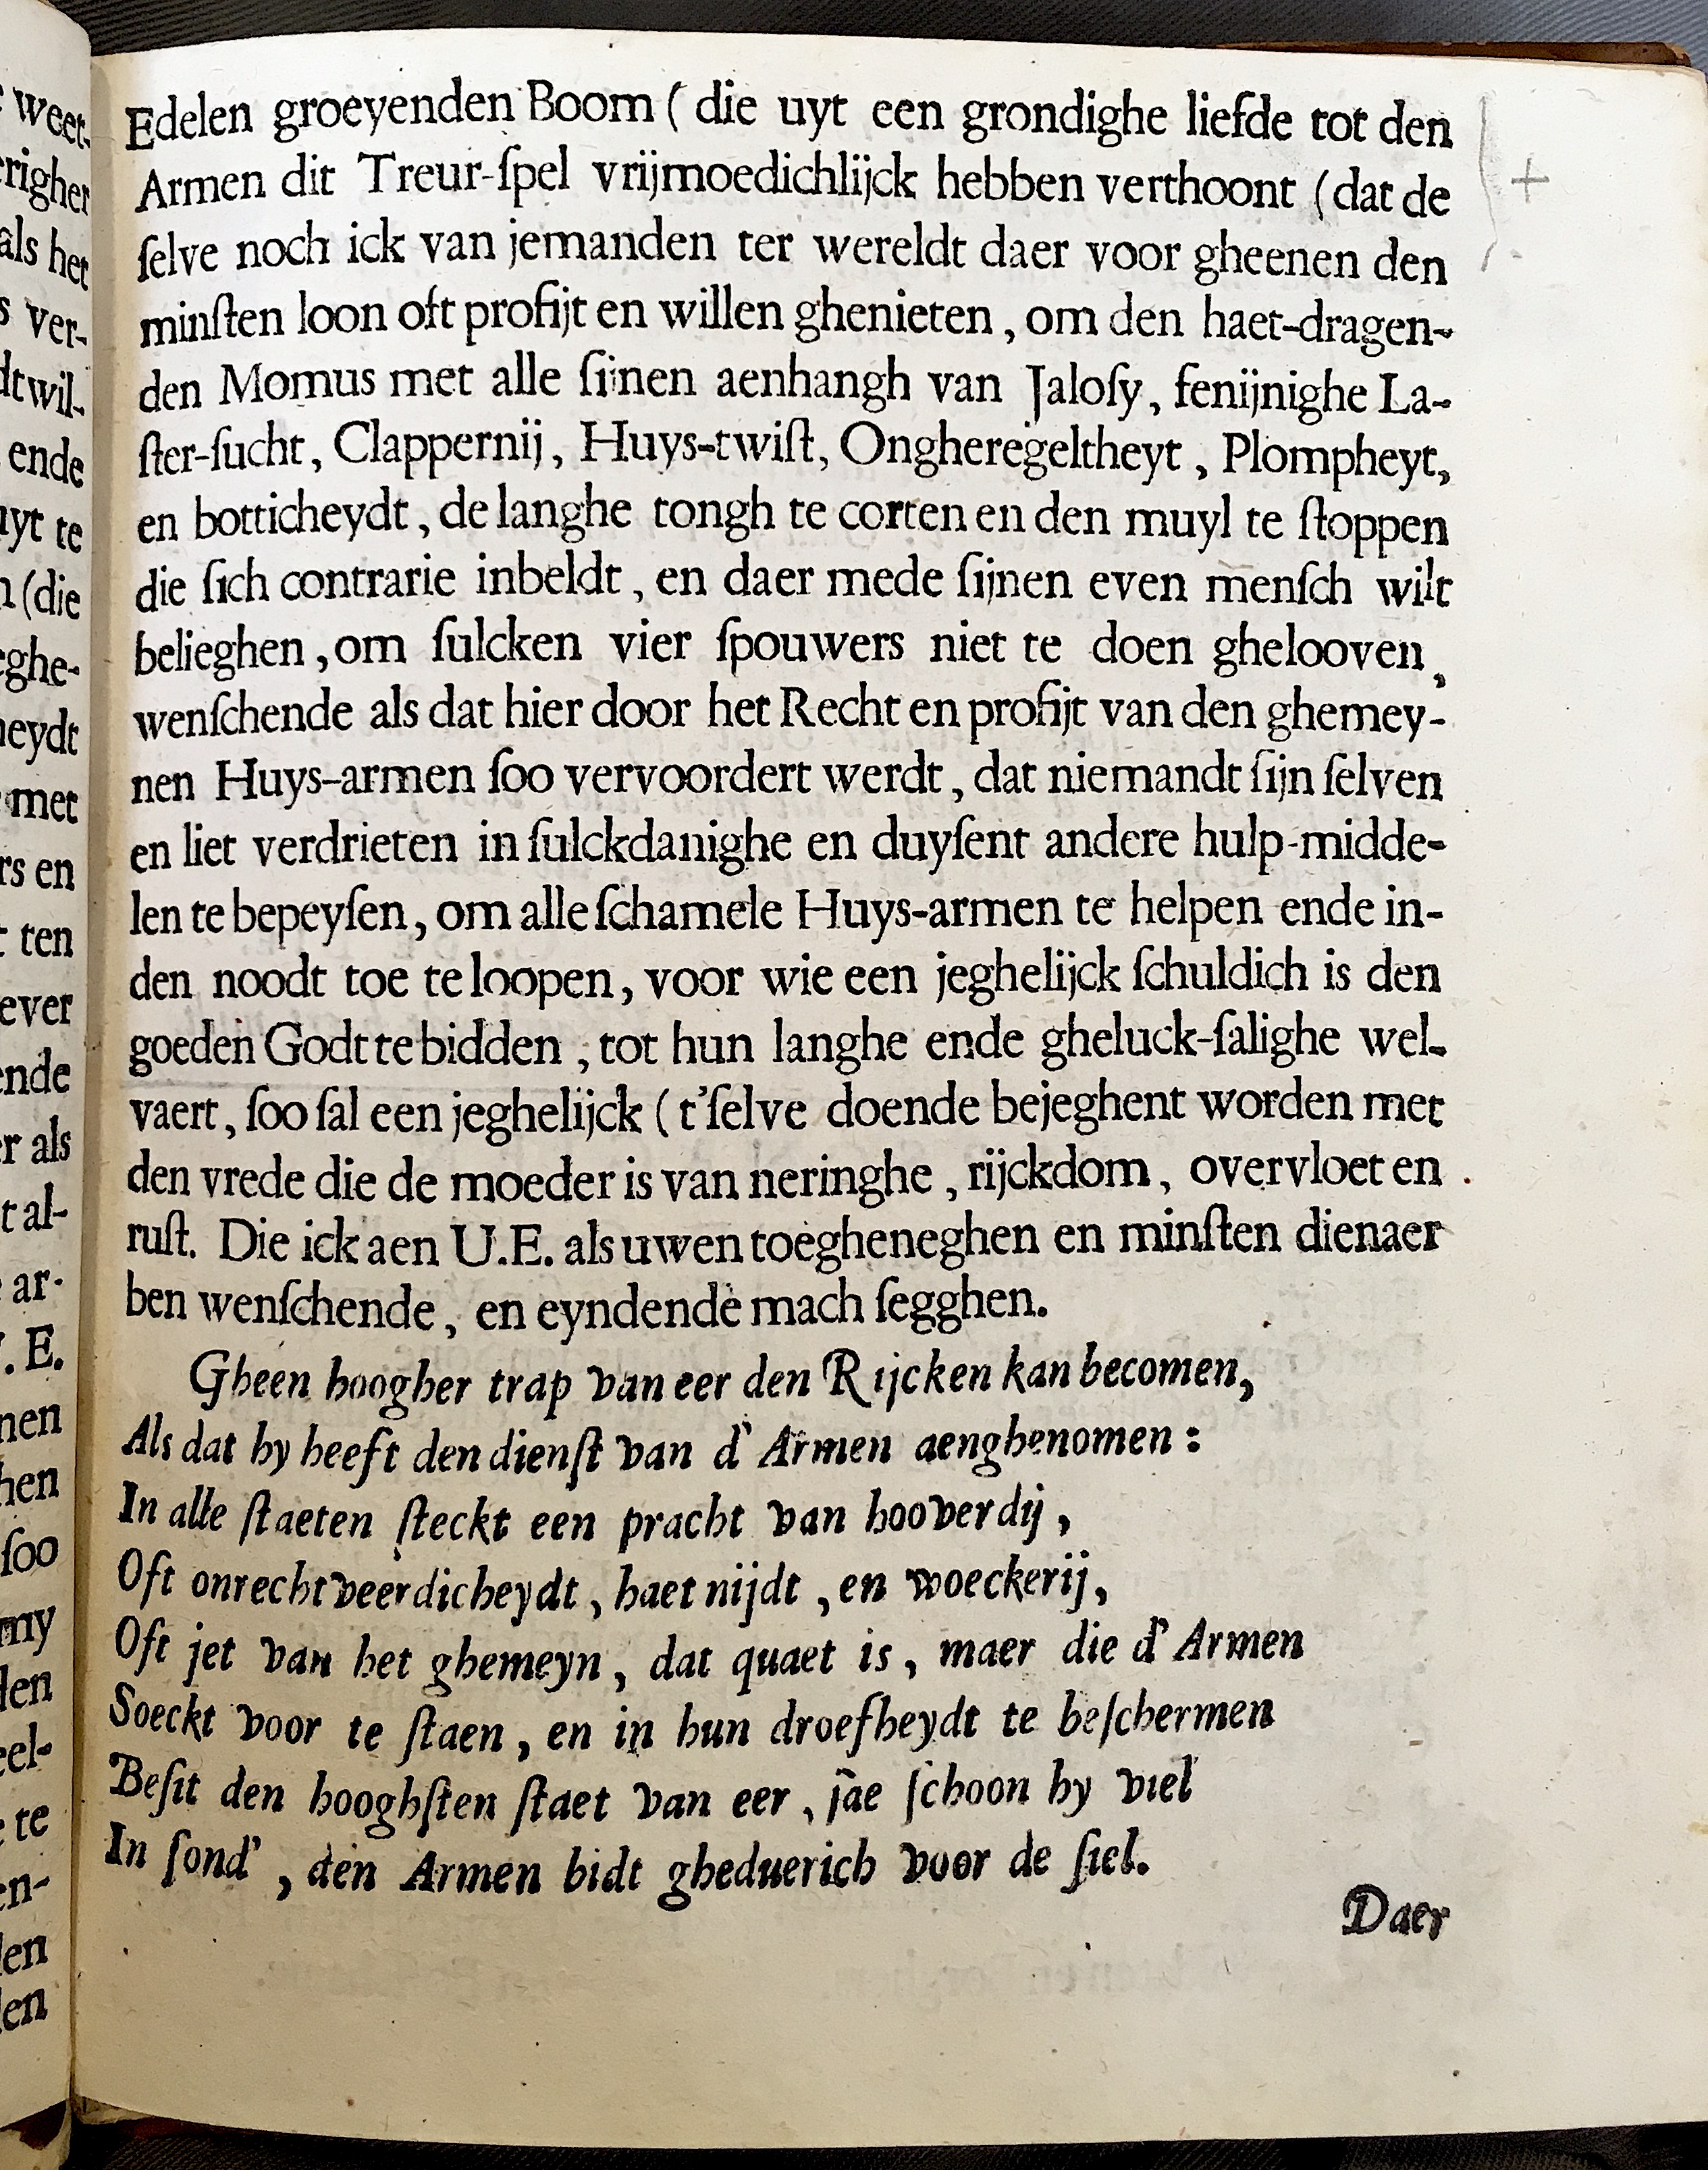 Edelen groeyenden Boom ( die uyt een grondighe liefde tot den
Armen dit Treur-ſpel vrijmoedichlijck hebben verthoont (dat de
ſelve noch ick van jemanden ter wereldt daer voor gheenen den
minſten loon oft profijt en willen ghenieten, om den haet-dragen-
den Momus met alle ſijnen aenhangh van Jaloſy, fenijnighe La-
ſter-ſucht, Clappernij, Huys-twiſt, Ongheregeltheyt, Plompheyt,
en botticheydt, de langhe tongh te corten en den muyl te ſtoppen
die ſich contrarie inbeldt, en daer mede ſijnen even menſch wilt
belieghen, om ſulcken vier ſpouwers niet te doen ghelooven,
wenſchende als dat hier door het Recht en profijt van den ghemey-
nen Huys-armen ſoo vervoordert werdt, dat niemandt ſijn ſelven
en liet verdrieten in ſulckdanighe en duyſent andere hulp-midde-
len te bepeyſen, om alle ſchamele Huys-armen te helpen ende in-
den noodt toe te loopen, voor wie een jeghelijck ſchuldich is den
goeden Godt te bidden, tot hun langhe ende gheluck-ſalighe wel-
vaert, ſoo ſal een jeghelijck ( t'ſelve doende bejeghent worden met
den vrede die de moeder is van neringhe, rijckdom, overvloet en
ruſt. Die ick aen U.E. als uwen toegheneghen en minſten dienaer
ben wenſchende, en eyndende mach ſegghen.
Gheen hoogher trap van eer den Rijcken kan becomen,
Als dat hy heeft den dienſt van d' Armen aenghenomen:
In alle ſtaeten ſteckt een pracht van hooverdij,
Oft onrechtveerdicheydt, haet nijdt, en woeckerij,
Oft jet van het ghemeyn, dat quaet is, maer die d' Armen
Soeckt voor te ſtaen, en in hun droefheydt te beſchermen
Beſit den hooghſten ſtaet van eer, jae ſchoon hy viel
In ſond', den Armen bidt gheduerich voor de ſiel.
Daer
weet-
righer
als het
s ver-
dt wil-
ende
uyt te
n (die
eghe-
heydt
met
rs en
ten
ever
ende
r als
t al-
ar-
. E.
nen
hen
ſoo
my
den
eel-
te
en-
len
len